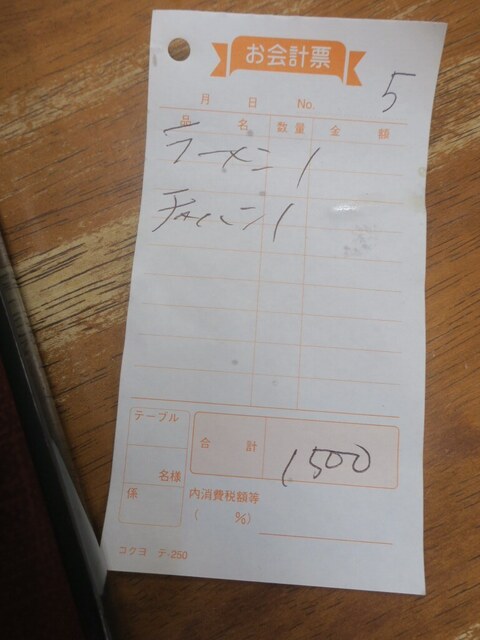 お会計票
月 日 No. 5
品 名 数量 金 額
ラーメン 1
チャーハン 1
テーブル
名様
係
合 計 1500
内消費税額等
( %)
コクヨ テ-250